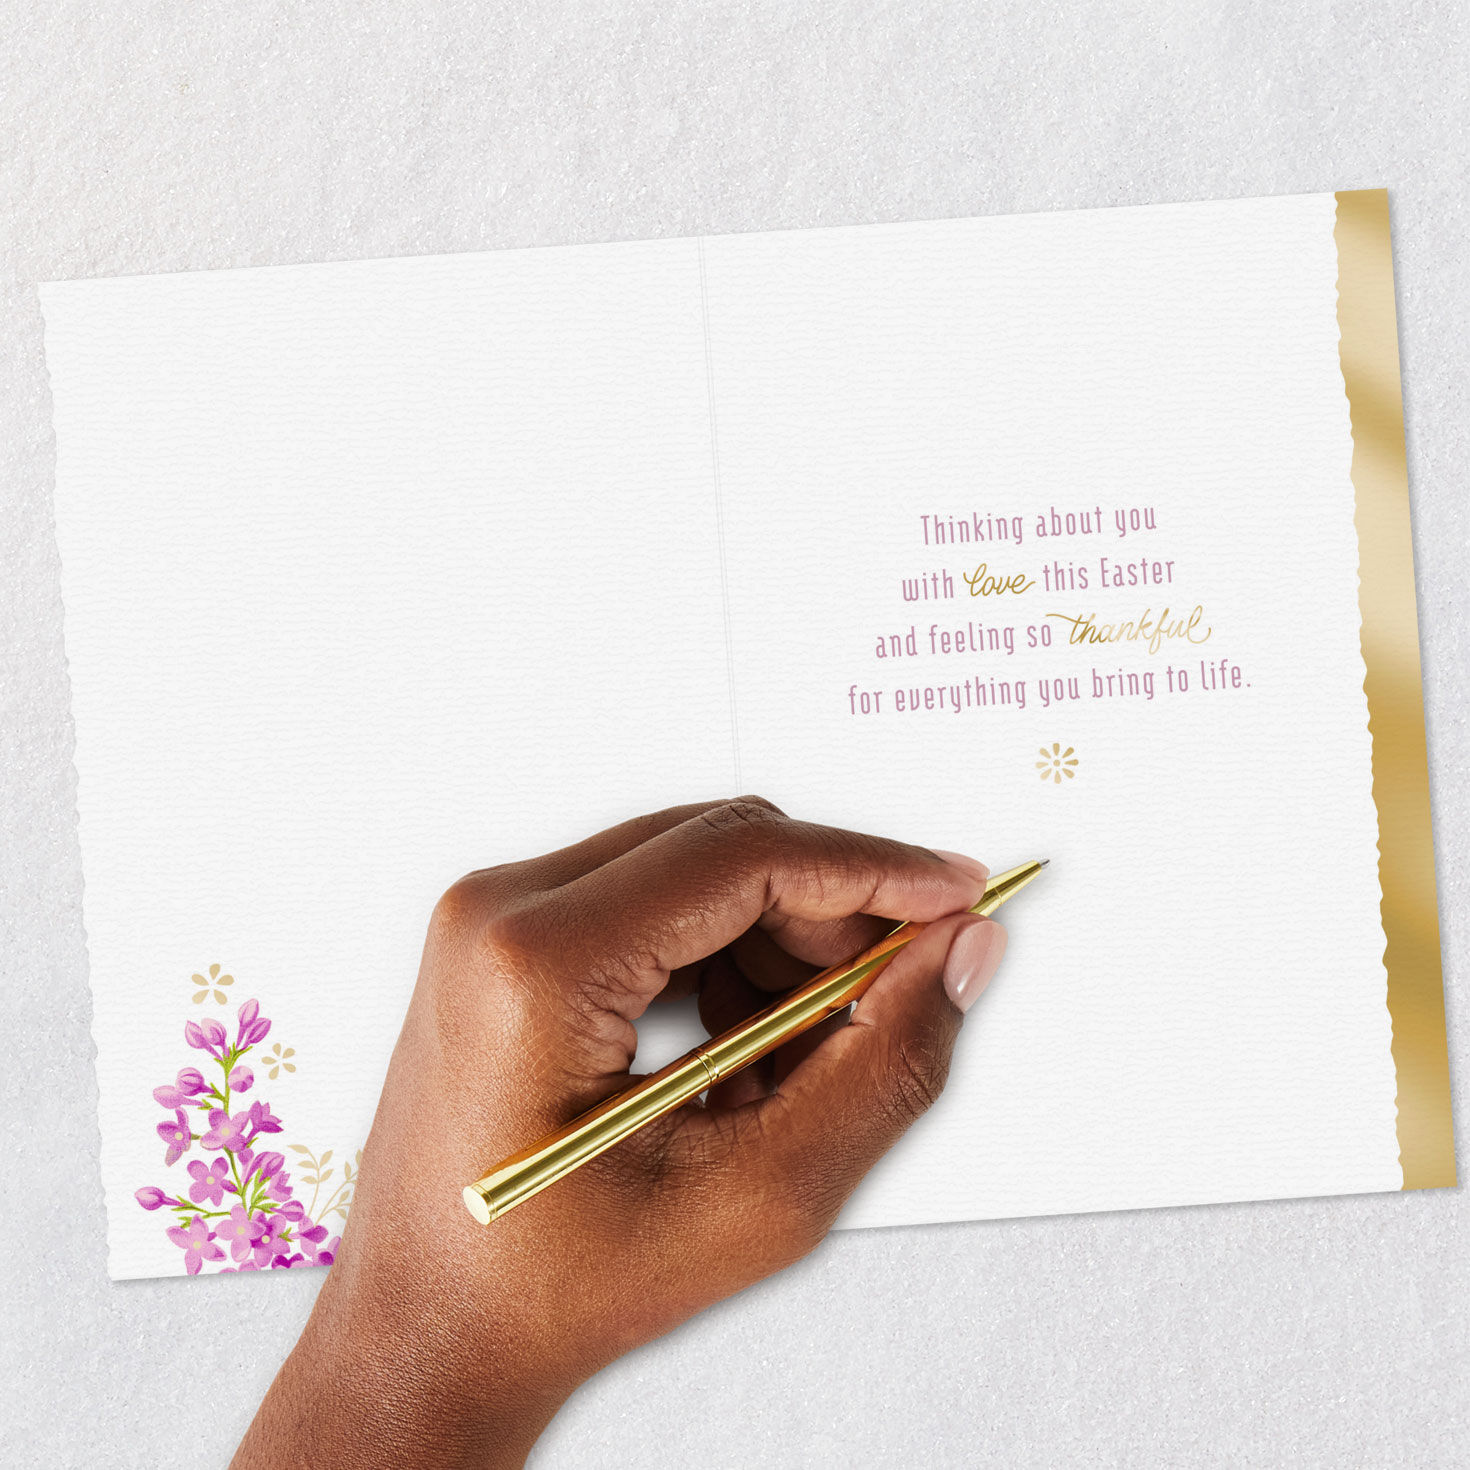 Thinking about you
with love this Easter
and feeling so thankful
for everything you bring to life.